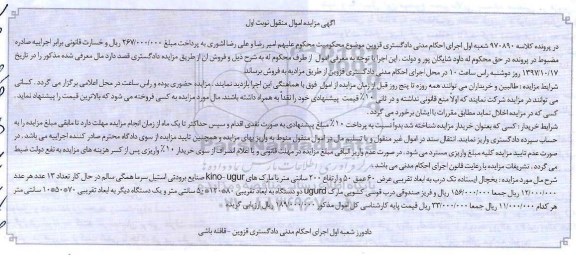 آگهی مزایده اموال منقول نوبت اول
در پرونده کلاسه ۹۷۰۸۹۰ شعبه اول اجرای احکام مدنی دادگستری قزوین موضوع محکومیت محکوم علیهم امیر رضا و علی رضا اشوری به پرداخت مبلغ ۲۶۷/۰۰۰/۰۰۰ ریال و خسارت قانونی برابر اجراییه صادره
مضبوط در پرونده در حق محکوم له داود شایگان پور و دولت. این اجرا با توجه به معرفی اموال از طرف محکوم له به شرح ذیل و فروش آن از طریق مزایده دادگستری قصد دارد مال معرفی شده مذکور را در تاریخ
۱۳۹۷/۱۰/۱۷ روز دوشنبه راس ساعت ۱۰ در محل اجرای احکام مدنی دادگستری قزوین از طریق مزایده به فروش برساند.
شرایط مزایده: طالبین و خریداران می توانند همه روزه تا پنج روز قبل از زمان مزایده از اموال فوق با هماهنگی این اجرا بازدید نمایند. مزایده حضوری بوده و راس ساعت در محل اعلامی برگزار می گردد. کسانی
می توانند در مزایده شرکت نمایند که اولا منع قانونی نداشته و در ثانی ۱۰٪ قیمت پیشنهادی خود را نقدا به همراه داشته باشند. مال مورد مزایده به کسی فروخته می شود که بالاترین قیمت را پیشنهاد نماید.
کسی که در مزایده اخلال نماید مطابق مقررات با ایشان برخورد می گردد.
شرایط خریدار: کسی که بعنوان خریدار مزایده شناخته شد بدوا نسبت به پرداخت ۱۰٪ مبلغ پیشنهادی به صورت نقدی اقدام و سپس حداکثر تا یک ماه از زمان انجام مزایده مهلت دارد تا مابقی مبلغ مزایده را به
حساب سپرده دادگستری واریز نمایند. انتقال سند در اموال غیر منقول و تسلیم مال در اموال منقول منوط به واریز تمام مبلغ مزایده و همچنین تایید مزایده از سوی دادگاه محترم صادر کننده اجراییه می باشد. در
صورت عدم تایید مزایده کلیه مبلغ واریزی مسترد می شود. در صورت عدم واریز مابقی مبلغ مزایده در مهلت قانونی و یا اعلام انصراف از سوی خریدار ۱۰٪ واریزی پس از کسر هزینه های مزایده به نفع دولت ضبط
می گردد. تشریفات مزایده با رعایت قانون اجرای احکام مدنی می باشد.
شرح مال مورد مزایده: یخچال ایستاده تک درب به ابعاد تقریبی عرض ۶۰ عمق ۵۰ وارتفاع ۲۰۰ سانتی متر با مارک های kino- ugur صنایع برودتی استیل سرما همگی سالم در حال کار تعداد ۱۳ عدد هر عدد
۱۲/۰۰۰/۰۰۰ ریال جمعا ۱۵۶/۰۰۰/۰۰۰ ریال و فریز صندوقی درب قوسی کشویی مارک ugurd دو دستگاه به ابعاد تقریبی
هر کدام ۱۱/۰۰۰/۰۰۰ ریال جمعا ۳۳/۰۰۰/۰۰۰ ریال قیمت پایه کارشناسی کل اموال مذکور ۱۸۹/۰۰۰/۰۰۰ ریال ارزیابی گردید.
دادورز شعبه اول اجرای احکام مدنی دادگستری قزوین -قافله باشی